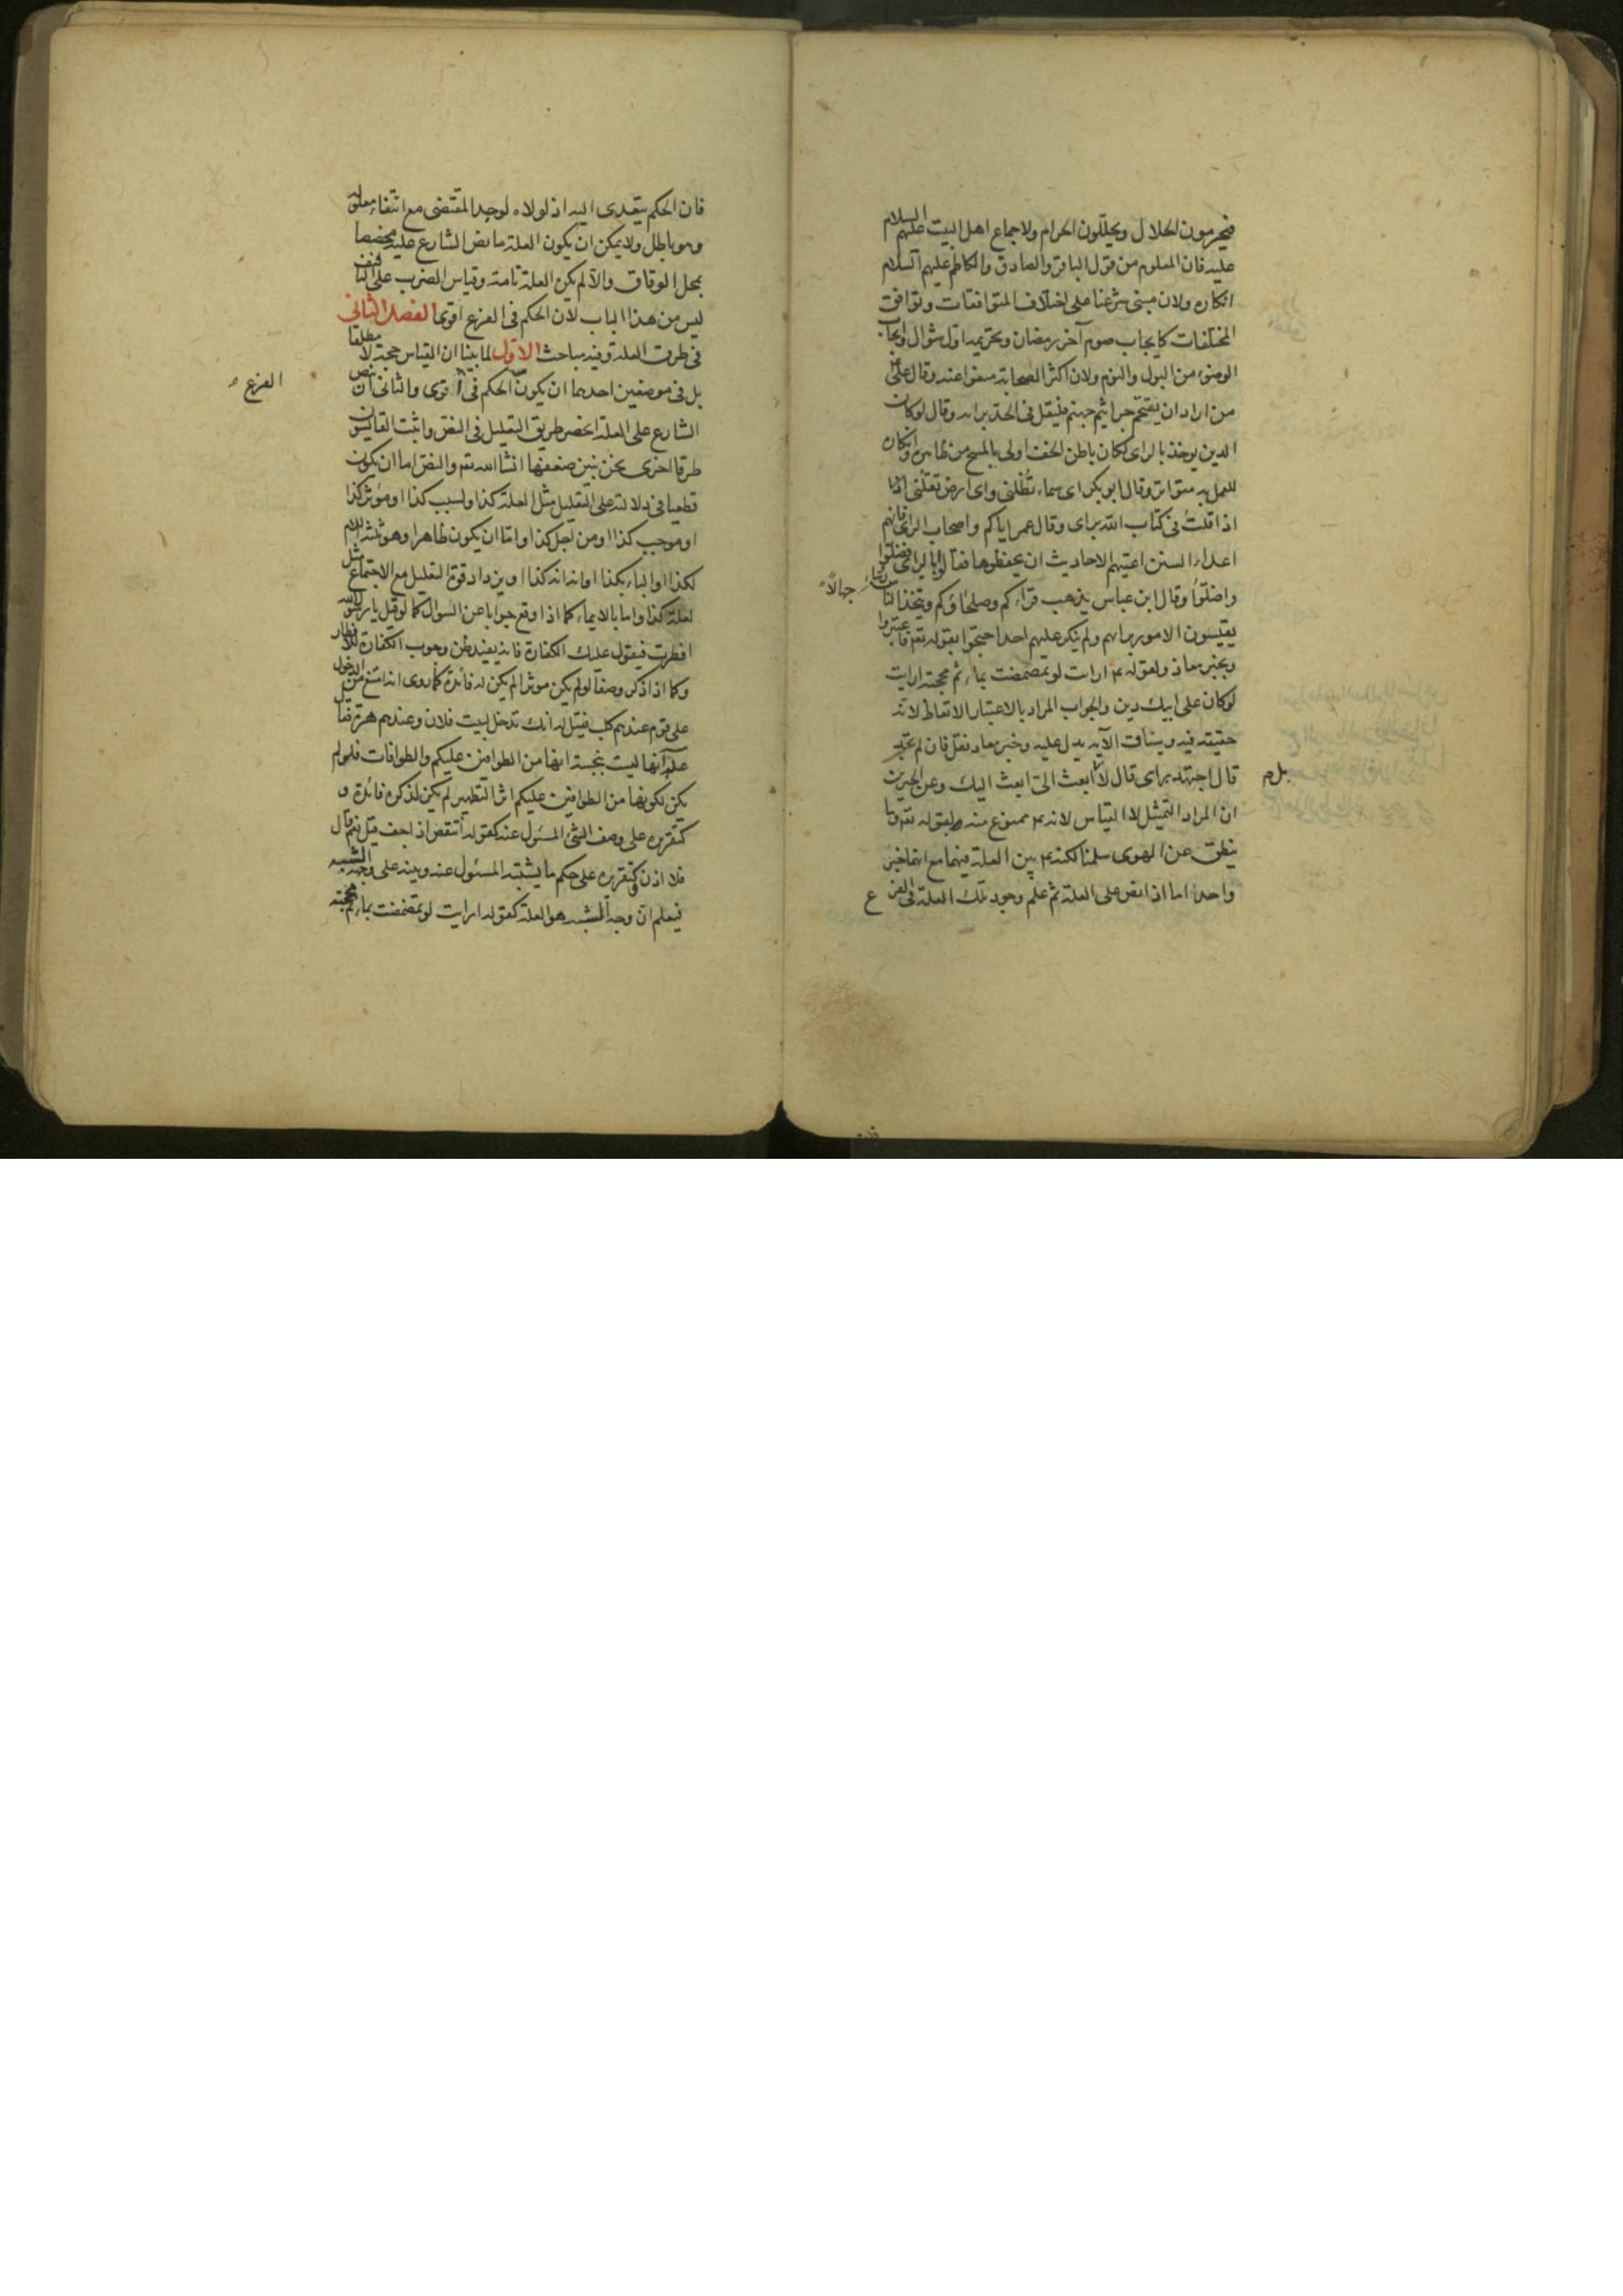 فيحرمون الحلال ويحللون الحرام ولاجماع اهل البيت عليهم السلام
عليه فان المعلوم من قول الباقر والصادق والكاظم عليهم السلام
انكاره ولان مبنى شرعنا على اختلاف المتوافقات وتوافق
المختلفات كايجاب صوم آخر رمضان وتحريم اول شوال وايجاب
الوضوء من البول والنوم ولان اكثر الصحابة منعوا عنه وقال على
من اراد ان يقتحم جراثيم جهنم فليقل فى الجد برايه وقال لو كان
الدين يوخذ بالراى لكان باطن الخف اولى بالمسح من ظاهره وانكاره
للعمل به متواتر وقال ابو بكر اى سماء تظلنى واى ارض تقلنى
اذا قلت فى كتاب الله براى وقال عمر اياكم واصحاب الراى فانهم
اعداء السنن اعيتهم الاحاديث ان يحفظوها فقالوا بالراى فضلوا
واضلوا وقال ابن عباس يذهب قراءكم وصلحاؤكم ويتخذ الناس رؤساء جهالا
يقيسون الامور برايهم ولم ينكر عليهم احد احتجوا بقوله تعم فاعتبروا
وبخبر معاذ ولقوله عم ارايت لو تمضمضت بماء ثم مججته ارايت
لو كان على ابيك دين والجواب المراد بالاعتبار الاتعاظ لانه
حقيقه فيه وسياق الآيه يدل عليه وخبر معاذ نقل فان لم تجد
قال اجتهد براى قال لا بل م ابعث الى ابعث اليك وعن الخبرين
ان المراد التمثيل لا القياس لانه عم ممنوع منه لقوله تعم وما
ينطق عن الهوى سلمنا لكنه عم بين العلة فيهما مع انهما خبر
واحد اما اذا نص على العلة ثم علم وجود تلك العلة فى الفرع
فان الحكم يتعدى اليه اذ لولاه لوجد المقتضى مع انتفاء معلوله
وهو باطل ولا يمكن ان يكون العلة ما نص الشارع عليه مخصصا
بمحل الوفاق والا لم يكن العلة تامة وقياس الضرب على التافيف
ليس من هذا الباب لان الحكم فى الفرع اقوى الفصل الثانى
فى طرق العلة وفيه مباحث الاول لما بينا ان القياس حجة لا مطلقا
بل فى موضعين احدهما ان يكون الحكم فى الفرع اقوى والثانى ان ينص
الشارع على العلة انحصر طريق التعليل فى النص واثبت القايسون
طرقا اخرى نحن نبين ضعفها انشا الله تعم والنص اما ان يكون
قطعيا فى دلالته على التعليل مثل لعلة كذا ولسبب كذا او موثر كذا
او موجب كذا او من اجل كذا واما ان يكون ظاهرا وهو ثلثه اللام
لكذا او الباء بكذا او ان انه كذا ويزداد قوة التعليل مع الاجتماع مثل
لعلة كذا واما بالايماء كما اذا وقع جوابا عن السوال كما لو قيل يا رسول الله
افطرت فيقول عليك الكفارة فانه يفيد ظن وجوب الكفارة للافطار
وكما اذا ذكر وصفا لو لم يكن موثرا لم يكن له فائدة كما روى انه امتنع من الدخول
على قوم عندهم كلب فقيل له انك تدخل بيت فلان وعندهم هرة فقال
عليه آنها ليست بنجسة انها من الطوافين عليكم والطوافات فلو لم
يكن لكونها من الطوافين عليكم اثر التطهير لم يكن لذكره فائدة و
كتقريره على وصف الشئ المسئول عنه كقوله أينقص اذا جف قيل نعم قال
فلا اذن وكتقريره على حكم ما يشبه المسئول عنه وينبه على وجه الشبه
فيعلم ان وجه الشبه هو العلة كقوله ارايت لو تمضمضت بماء ثم مججته